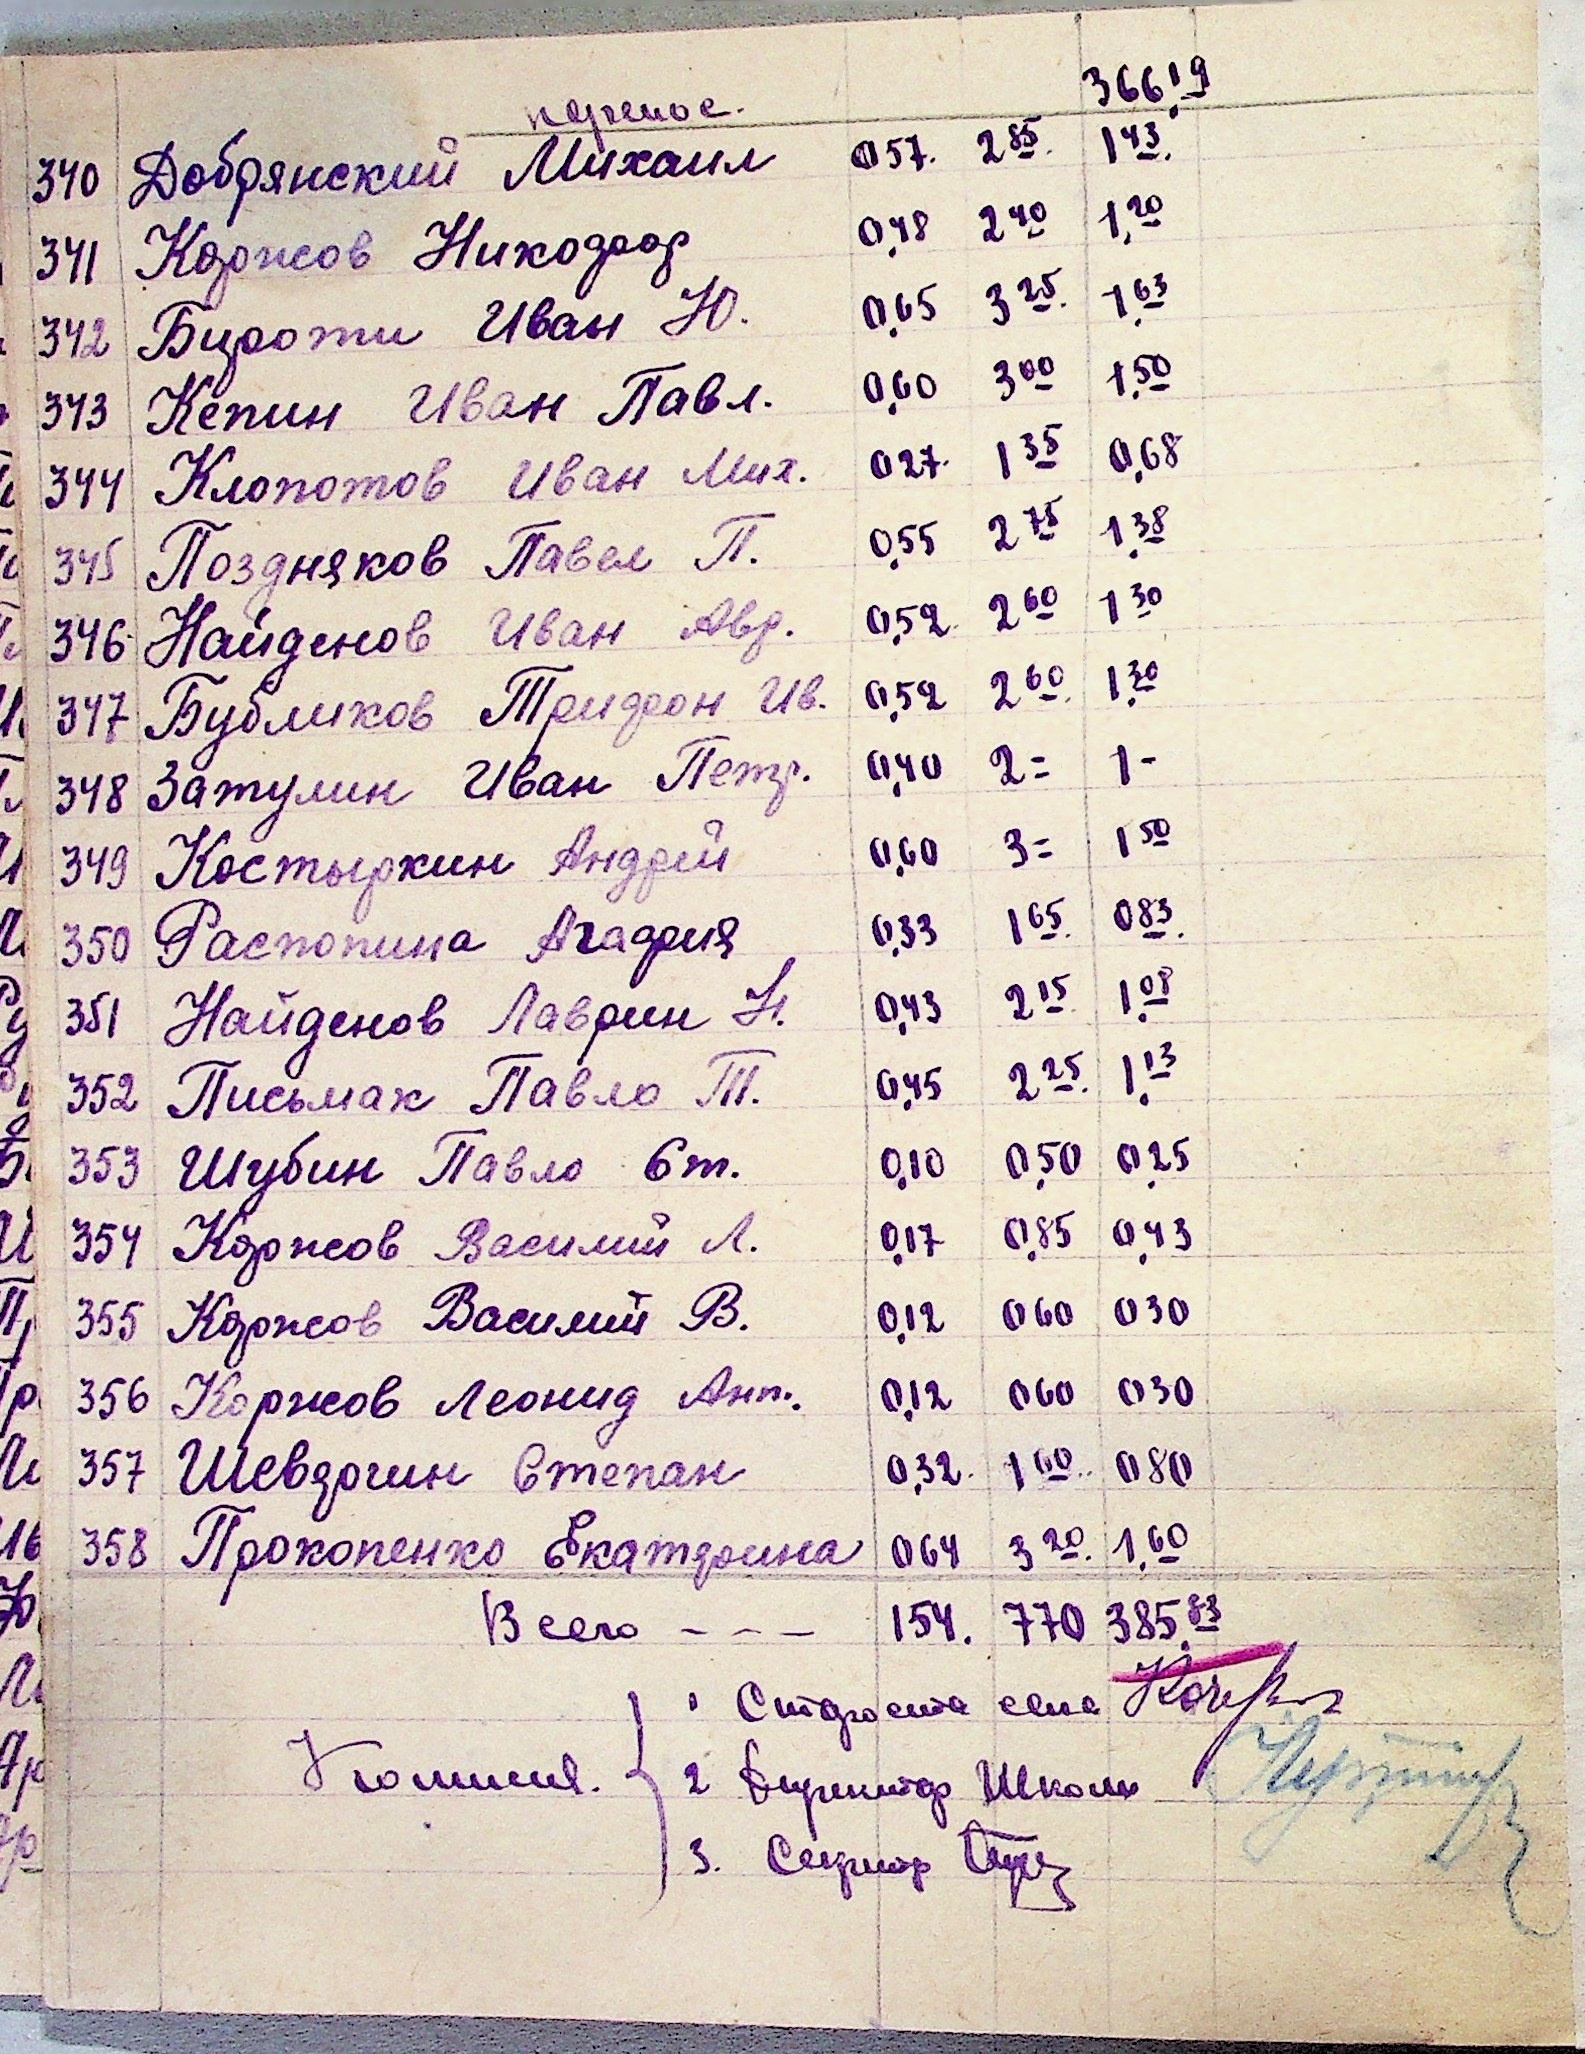 перенос. 366,19
340 Добрянский Михаил 0,57. 2 85. 1 43.
341 Коржов Никодор 0,48 2 40 1,20
342 Бурдоти Иван Ю. 0,65 3 25. 1,63
343 Кепин Иван Павл. 0,60 3 00 1,50
344 Клопотов Иван Мих. 0 27. 1 35 0,68
345 Поздняков Павел П. 0,55 2 75 1,38
346 Найденов Иван Авр. 0,52. 2 60 1 30
347 Бубликов Трифон Ив. 0,52 2 60. 1,30
348 Затулин Иван Петр. 0,40 2= 1-
349 Костыркин Андрей 0,60 3= 1 50
350 Распопина Агафия 0,33 1 65. 0 83.
351 Найденов Лаврин Н. 0,43 2 15 1,08
352 Письмак Павло Т. 0,45 2 25. 1,13
353 Шубин Павло Ст. 0,10 0,50 0,25
354 Коржов Василий Л. 0,17 0,85 0,43
355 Коржов Василий В. 0,12 0 60 0 30
356 Коржов Леонид Ант. 0,12 0 60 0 30
357 Шевергин Степан 0,32. 1 60.. 0 80
358 Прокопенко Екатерина 0 64 3 20. 1,60
Всего - - - 154. 770 385,83
1 Староста села
Комисия. 2 Директор Школи
3. Секретар